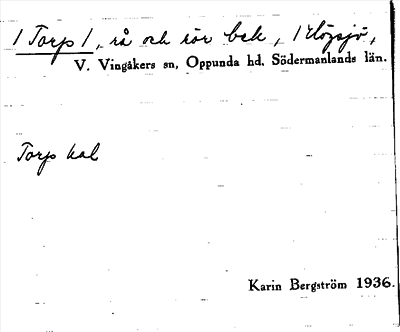 / Torp /, rå och rör bek, / Högsjö,
V. Vingåkers sn, Oppunda hd, Södermanlands län.
Torp kal
Karin Bergström 1936.